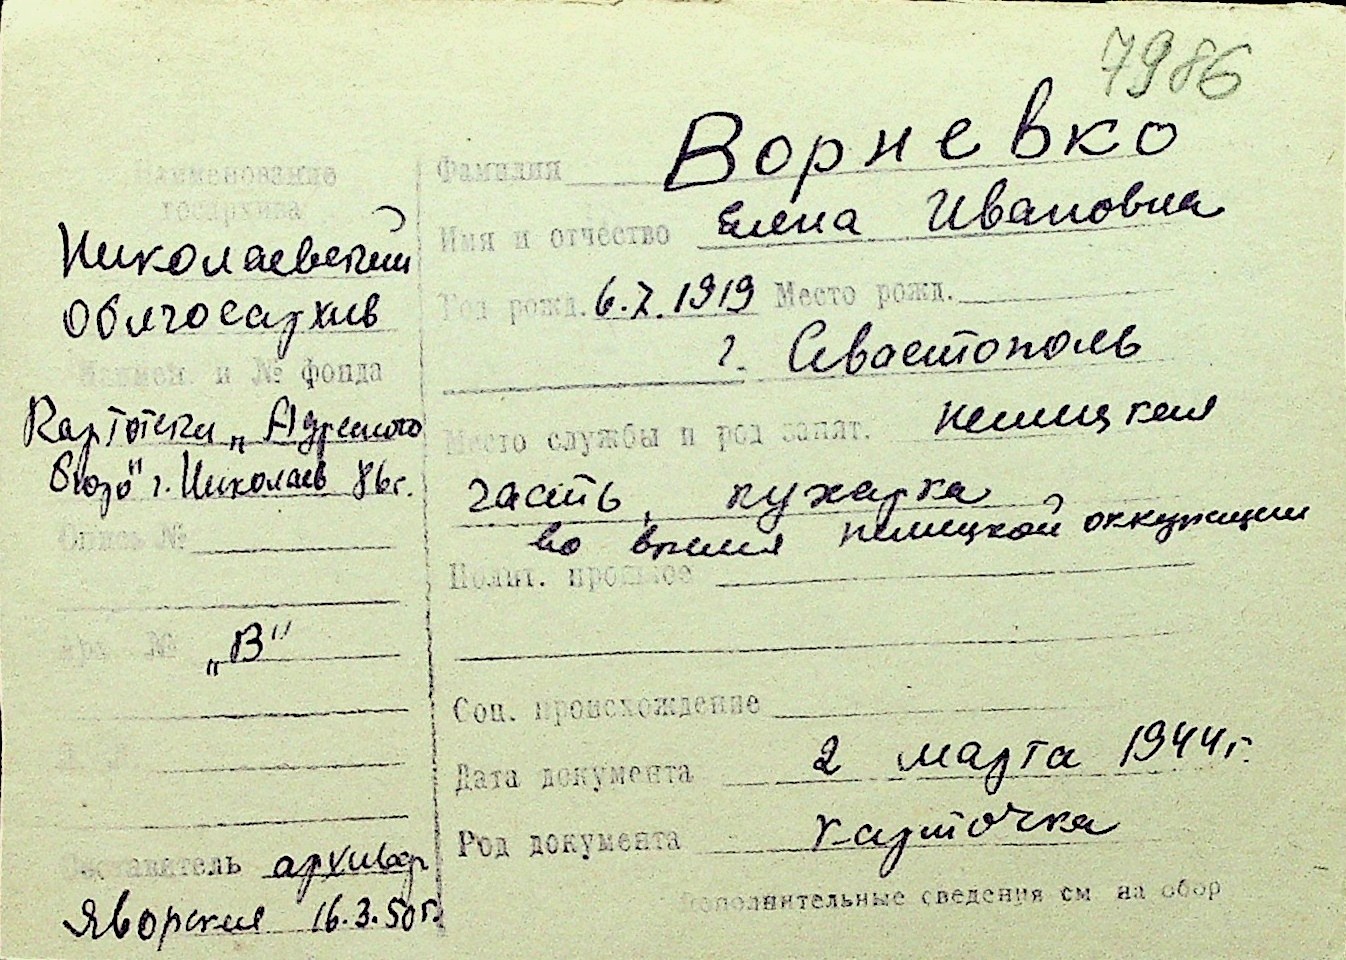 7986
Наименование
госархива
Николаевский
Облгосархив
Наимен. и № фонда
Картотеки „Адресного
бюро" г. Николаев 86г.
Опись №
арх. №
„В"
Составитель архивар
Яворская 16.3.50г.
Фамилия Ворневко
Имя и отчество Елена Ивановна
Год рожд. 6.7.1919 Место рожд.
г. Севастополь
Место службы и род занят. немецкая
часть, кухарка
во время немецкой оккупации
Полит. прошлое
Соц. происхождение
Дата документа 2 марта 1944г.
Род документа карточка
Дополнительные сведения см на обор